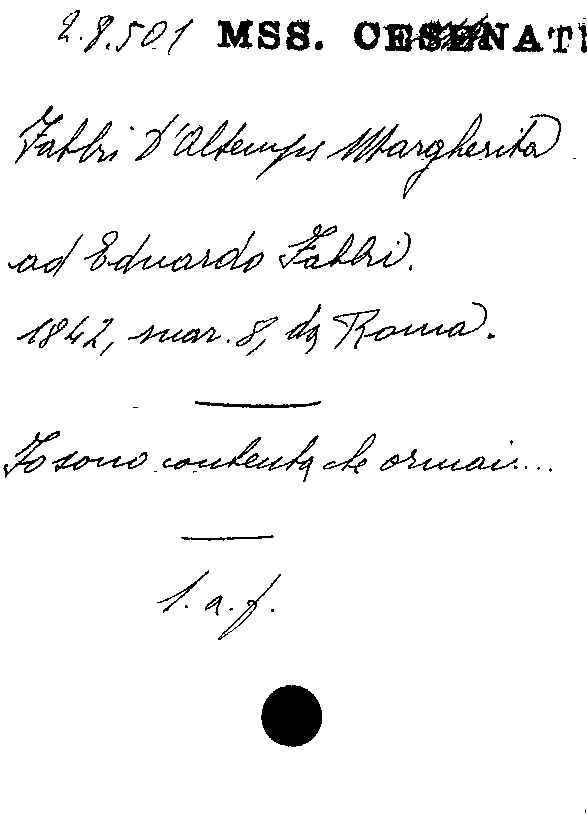 2.8.501 MSS. CESENATI
Fabbri D'Altemps Margherita
ad Eduardo Fabbri.
1842, mar. 8, da Roma.
Io sono contenta che ormai....
l. a. f.